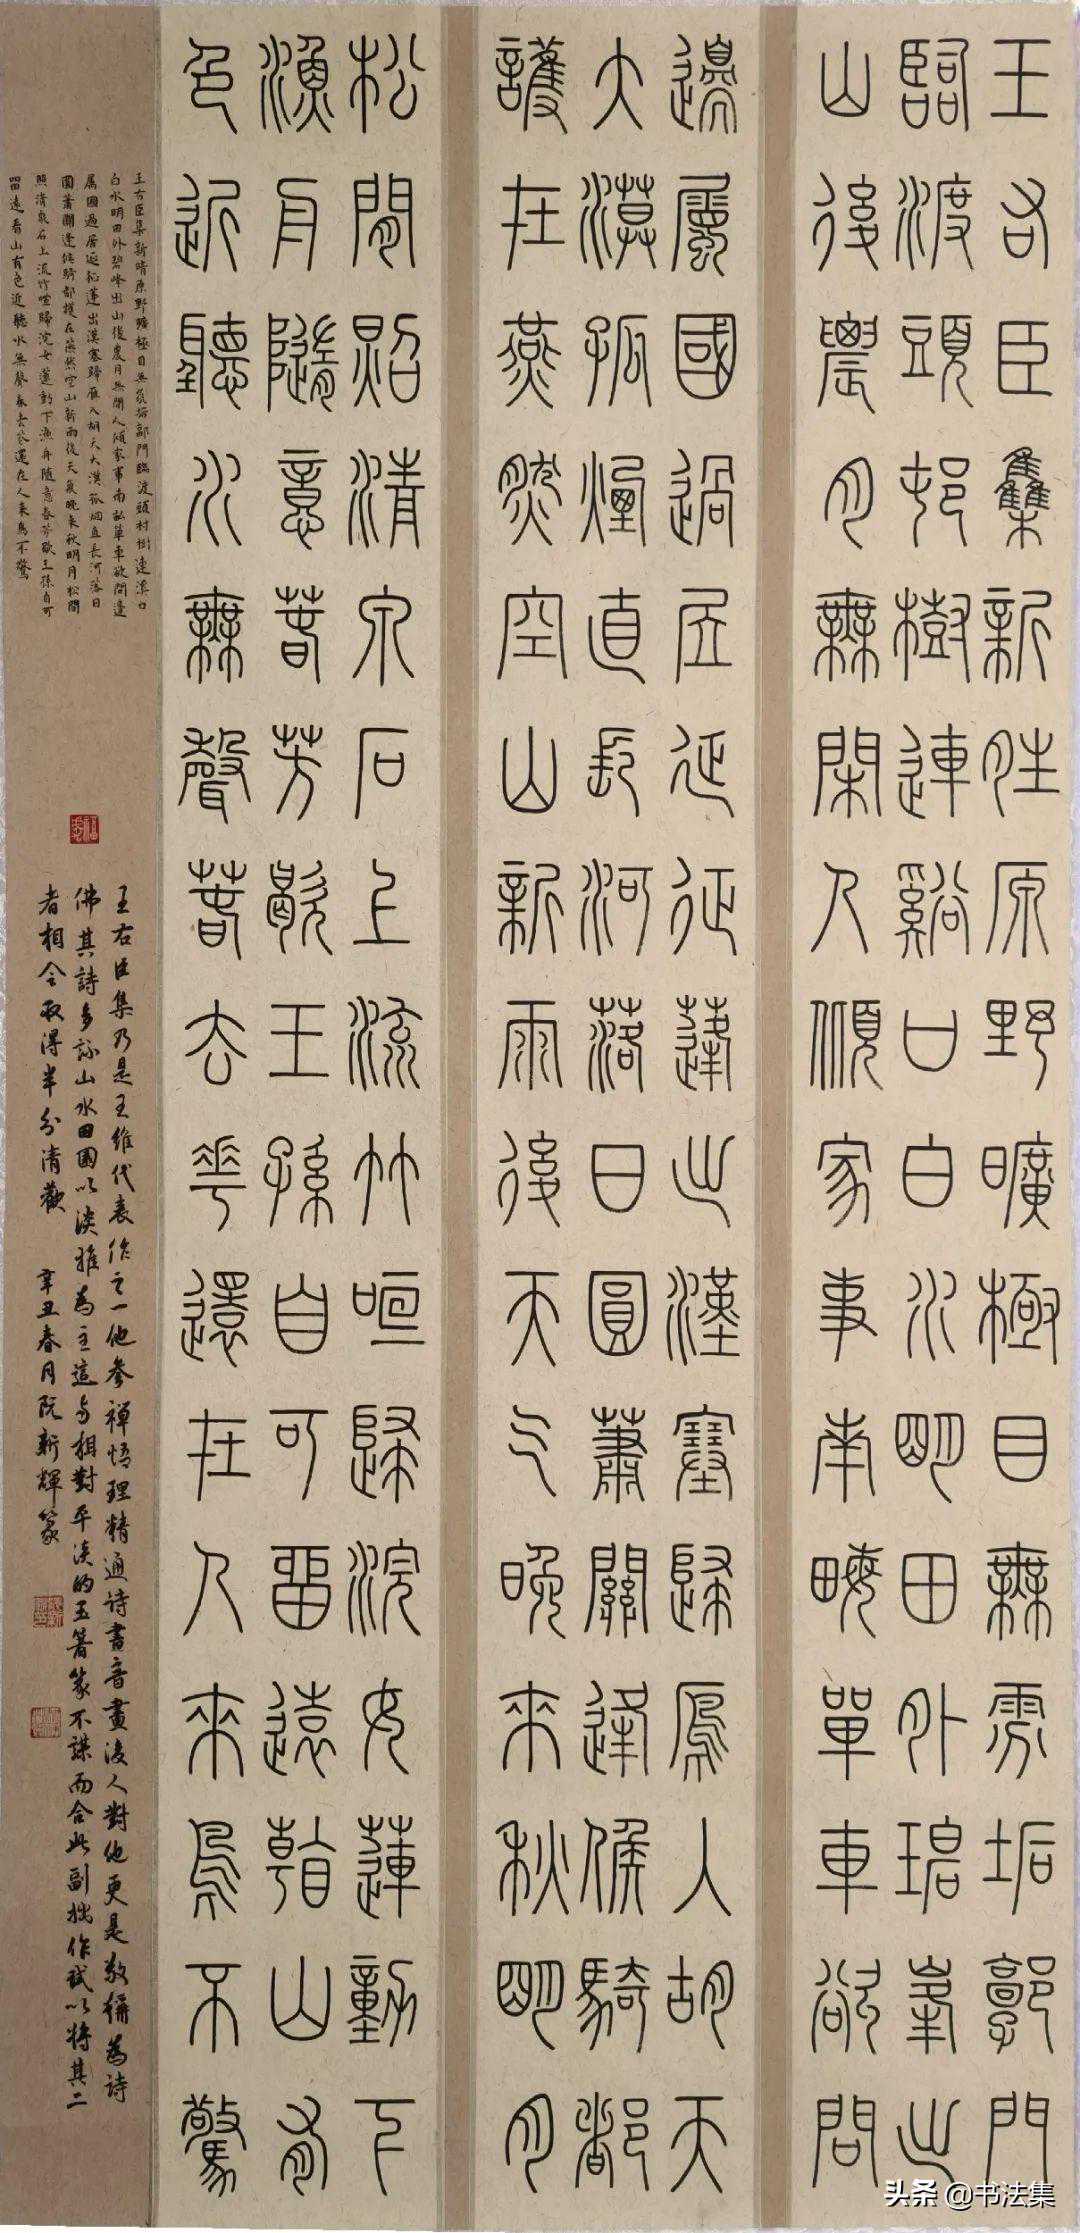 王右臣集新晴原野曠極目無氛垢郭門
臨渡頭村樹連溪口白水明田外碧峰出
山後農月無閒人傾家事南畝單車欲問
邊屬國過居延征蓬出漢塞歸雁入胡天
大漠孤煙直長河落日圓蕭關逢候騎都
護在燕然空山新雨後天气晚來秋明月
松間照清泉石上流竹喧歸浣女蓮動下
漁舟隨意春芳歇王孫自可留遠看山有
色近聽水無聲春去花還在人來鳥不驚
王右臣集新晴原野曠極目無氛垢郭門臨渡頭村樹連溪口
白水明田外碧峰出山後農月無閒人傾家事南畝單車欲問邊
屬國過居延征蓬出漢塞歸雁入胡天大漠孤烟直長河落日
圓蕭關逢候騎都護在燕然空山新雨後天氣晚來秋明月松間
照清泉石上流竹喧歸浣女蓮動下漁舟隨意春芳歇王孫自可
留遠看山有色近聽水無聲春去花還在人來鳥不驚
王右臣集乃是王維代表作之一他參禪悟理精通诗書音畫後人對他更是敬稱為詩
佛其詩多詠山水田園以淡雅為主這与相對平淡的玉箸篆不謀而合此副拙作試以將其二
者相合取得半分清歡 辛丑春月阮新輝篆
头条 @书法集